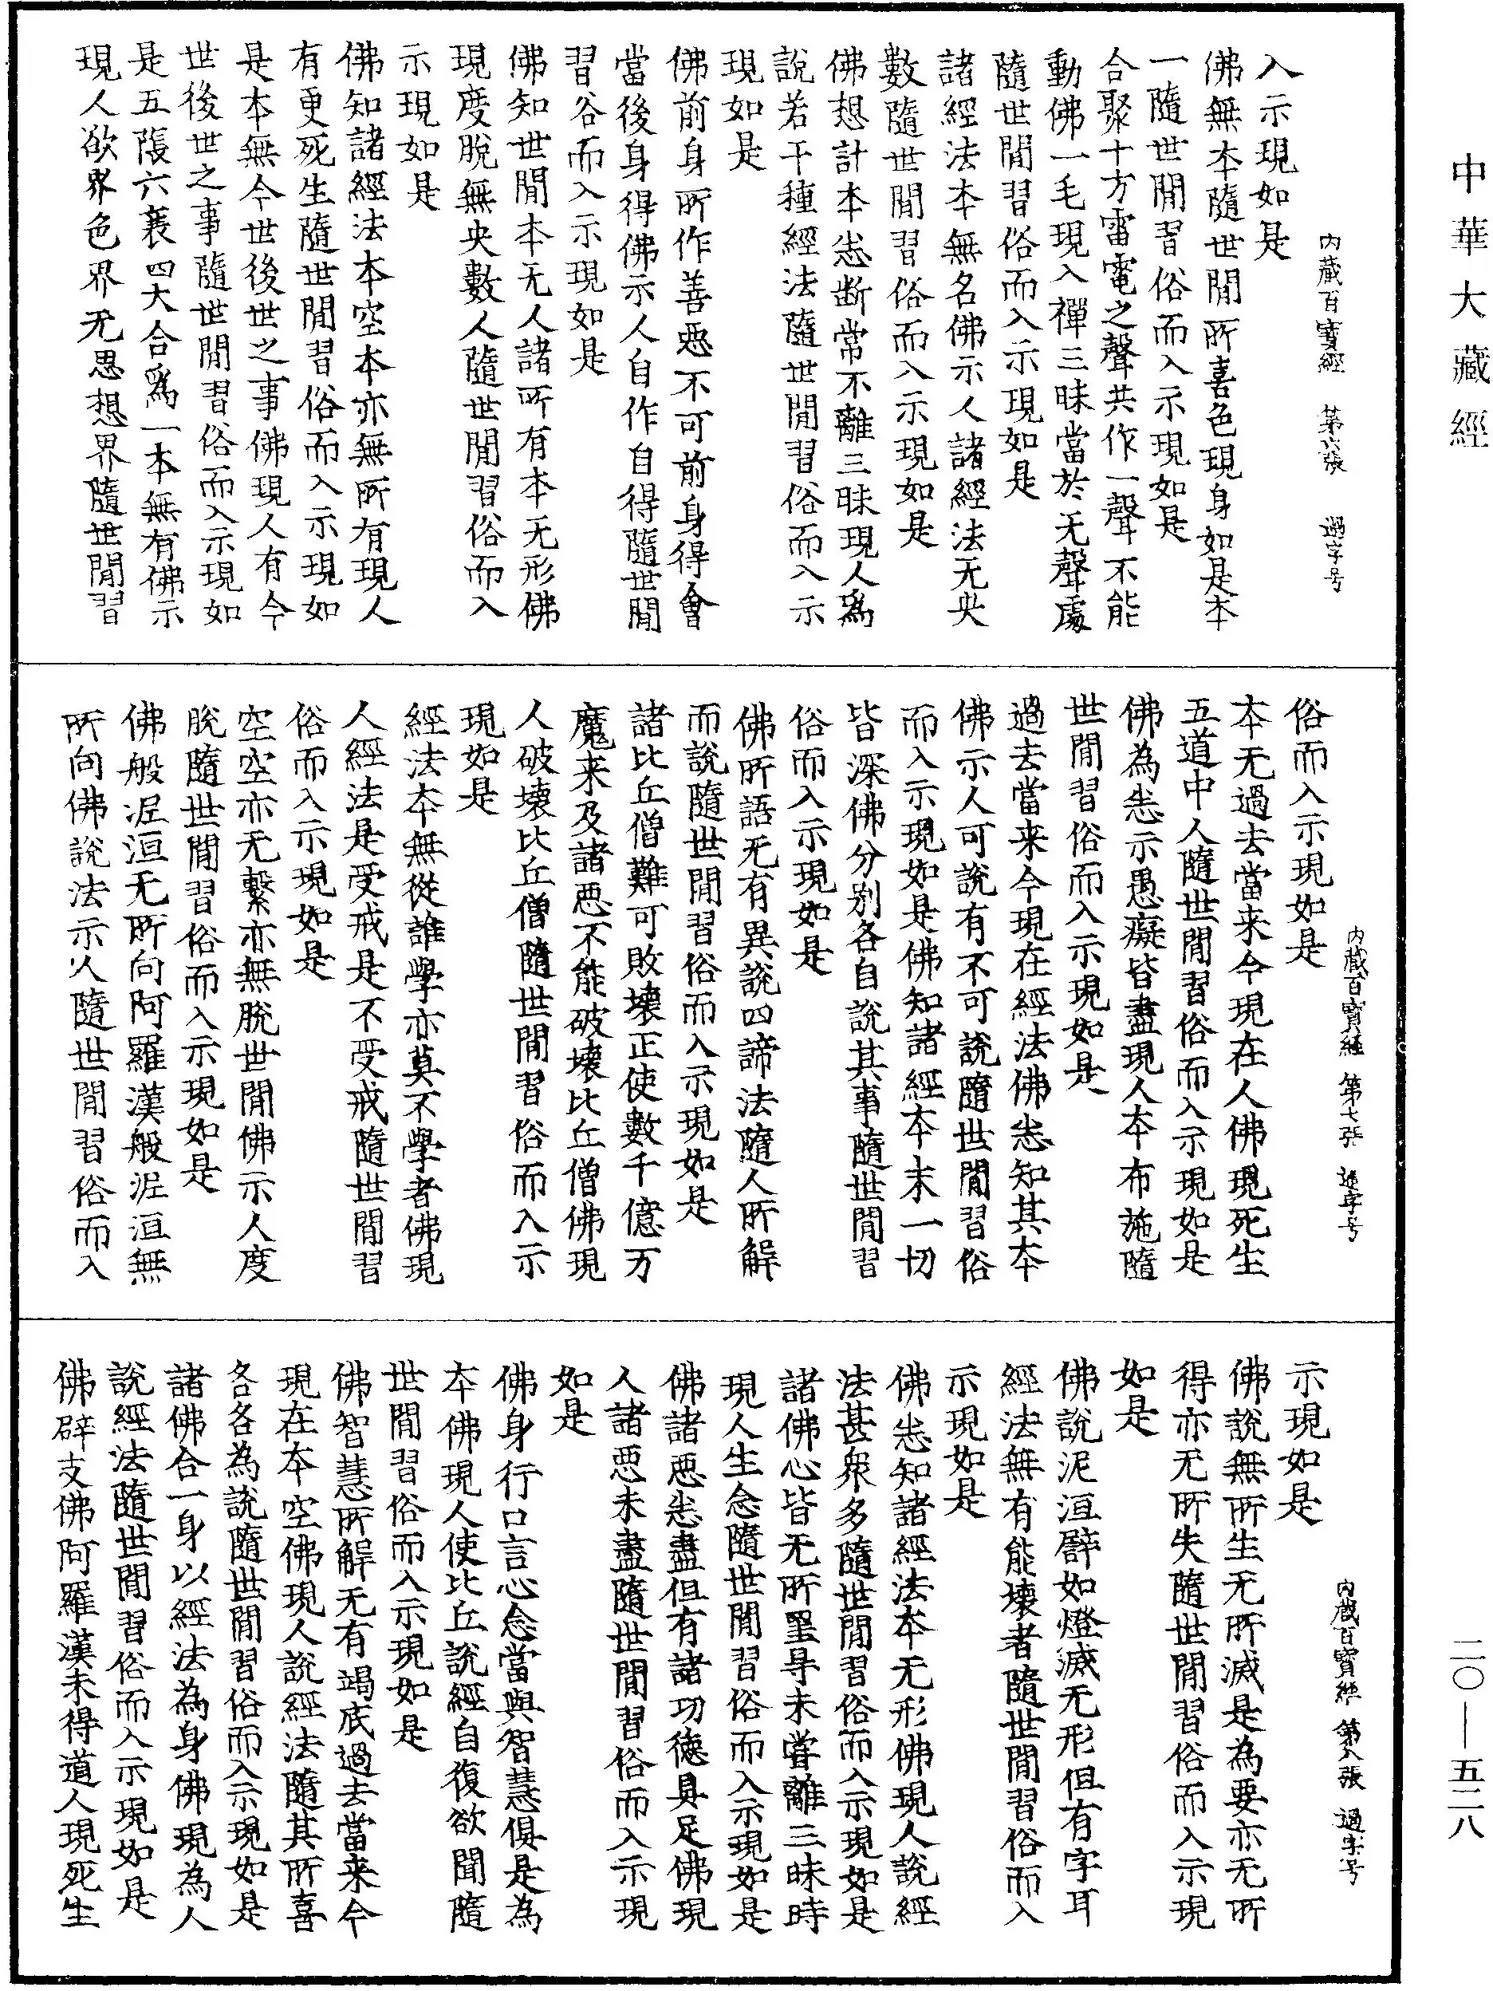 中華大藏經
內藏百寶經 第六張 過字号
入示現如是
佛無本隨世閒所喜色現身如是本
一隨世閒習俗而入示現如是
合聚十方雷電之聲共作一聲不能
動佛一毛現入禪三昧當於无聲處
隨世閒習俗而入示現如是
諸經法本無名佛示人諸經法无央
數隨世閒習俗而入示現如是
佛想計本悉断常不離三昧現人爲
說若干種經法隨世閒習俗而入示
現如是
佛前身所作善惡不可前身得會
當後身得佛示人自作自得隨世閒
習俗而入示現如是
佛知世閒本无人諸所有本无形佛
現度脫無央數人隨世閒習俗而入
示現如是
佛知諸經法本空本亦無所有現人
有更死生隨世閒習俗而入示現如
是本無今世後世之事佛現人有今
世後世之事隨世閒習俗而入示現如
是五陰六衰四大合爲一本無有佛示
現人欲界色界无思想界隨世閒習
內藏百寶經 第七張 過字号
俗而入示現如是
本无過去當来今現在人佛現死生
五道中人隨世閒習俗而入示現如是
佛為悉示愚癡皆盡現人本布施隨
世閒習俗而入示現如是
過去當来今現在經法佛悉知其本
佛示人可說有不可說隨世閒習俗
而入示現如是佛知諸經本末一切
皆深佛分别各自說其事隨世閒習
俗而入示現如是
佛所語无有異說四諦法隨人所解
而說隨世閒習俗而入示現如是
諸比丘僧難可敗壞正使數千億万
魔来及諸惡不能破壞比丘僧佛現
人破壞比丘僧隨世閒習俗而入示
現如是
經法本無從誰學亦莫不學者佛現
人經法是受戒是不受戒隨世閒習
俗而入示現如是
空空亦无繫亦無脫世閒佛示人度
脫隨世閒習俗而入示現如是
佛般泥洹无所向阿羅漢般泥洹無
所向佛說法示人隨世閒習俗而入
內藏百寶經 第八張 過字号
示現如是
佛說無所生无所滅是為要亦无所
得亦无所失隨世閒習俗而入示現
如是
佛說泥洹譬如燈滅无形但有字耳
經法無有能壞者隨世閒習俗而入
示現如是
佛悉知諸經法本无形佛現人說經
法甚衆多隨世閒習俗而入示現如是
諸佛心皆无所罣㝵未甞離三昧時
現人生念隨世閒習俗而入示現如是
佛諸惡悉盡但有諸功德具足佛現
人諸惡未盡隨世閒習俗而入示現
如是
佛身行口言心念當與智慧俱是為
本佛現人使比丘說經自復欲聞隨
世閒習俗而入示現如是
佛智慧所解无有竭底過去當来今
現在本空佛現人說經法隨其所喜
各各為說隨世閒習俗而入示現如是
諸佛合一身以經法為身佛現為人
說經法隨世閒習俗而入示現如是
佛辟支佛阿羅漢未得道人現死生
二〇—五二八